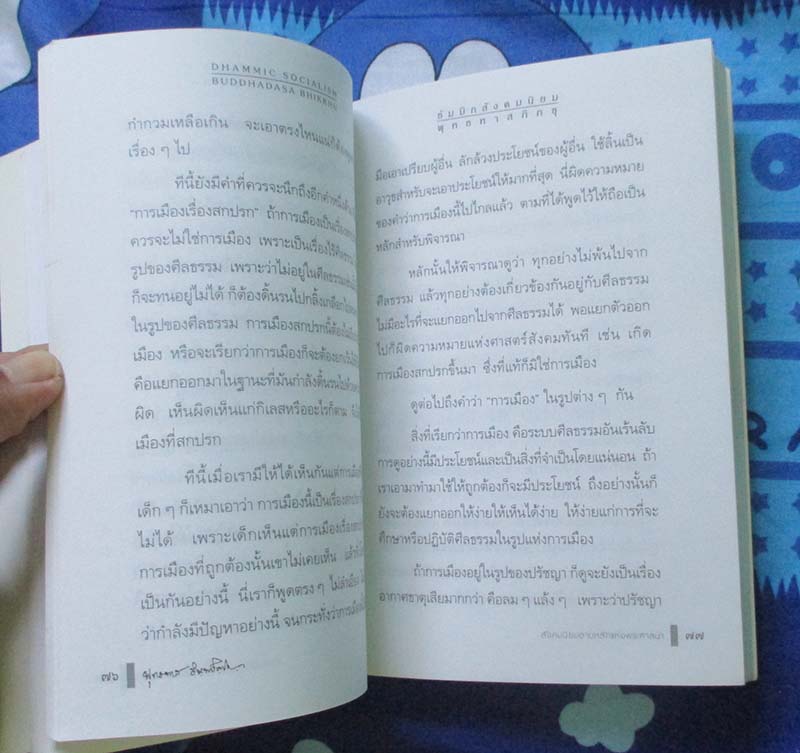 DHAMMIC SOCIALISM
BUDDHADASA BHIKKHU
กำกวมเหลือเกิน จะเอาตรงไหนแน่ก็
เรื่อง ๆ ไป
ทีนี้ยังมีคำที่ควรจะนึกถึงอีกคำหนึ่ง
“การเมืองเรื่องสกปรก” ถ้าการเมืองเป็นเรื่อง
ควรจะไม่ใช่การเมือง เพราะเป็นเรื่องไร้
รูปของศีลธรรม เพราะว่าไม่อยู่ในศีลธรรม
ก็จะทนอยู่ไม่ได้ ก็ต้องดิ้นรนไปกลิ้งเกลือก
ในรูปของศีลธรรม การเมืองสกปรกนี้ต้อง
เมือง หรือจะเรียกว่าการเมืองก็จะต้อง
คือแยกออกมาในฐานะที่มันกำลังดิ้นรนไป
ผิด เห็นผิดเห็นแก่กิเลสหรืออะไรก็ตาม
เมืองที่สกปรก
ทีนี้เมื่อเรามีให้ได้เห็นกันแต่การเมือง
เด็ก ๆ ก็เหมาเอาว่า การเมืองนี้เป็นเรื่อง
ไม่ได้ เพราะเด็กเห็นแต่การเมืองเรื่อง
การเมืองที่ถูกต้องนั้นเขาไม่เคยเห็น
เป็นกันอย่างนี้ นี่เราก็พูดตรง ๆ ไม่ลำเอียง
ว่ากำลังมีปัญหาอย่างนี้ จนกระทั่งว่าการ
๗๖
ธัมมิกสังคมนิยม
พุทธทาสภิกขุ
มือเอาเปรียบผู้อื่น ลักล้วงประโยชน์ของผู้อื่น ใช้ลิ้นเป็น
อาวุธสำหรับจะเอาประโยชน์ให้มากที่สุด นี่ผิดความหมาย
ของคำว่าการเมืองนี้ไปไกลแล้ว ตามที่ได้พูดไว้ให้ถือเป็น
หลักสำหรับพิจารณา
หลักนั้นให้พิจารณาดูว่า ทุกอย่างไม่พ้นไปจาก
ศีลธรรม แล้วทุกอย่างต้องเกี่ยวข้องกันอยู่กับศีลธรรม
ไม่มีอะไรที่จะแยกออกไปจากศีลธรรมได้ พอแยกตัวออก
ไปก็ผิดความหมายแห่งศาสตร์สังคมทันที เช่น เกิด
การเมืองสกปรกขึ้นมา ซึ่งที่แท้ก็มิใช่การเมือง
ดูต่อไปถึงคำว่า “การเมือง” ในรูปต่าง ๆ กัน
สิ่งที่เรียกว่าการเมือง คือระบบศีลธรรมอันเร้นลับ
การดูอย่างนี้มีประโยชน์และเป็นสิ่งที่จำเป็นโดยแน่นอน ถ้า
เราเอามาทำมาใช้ให้ถูกต้องก็จะมีประโยชน์ ถึงอย่างนั้นก็
ยังจะต้องแยกออกให้ง่ายให้เห็นได้ง่าย ให้ง่ายแก่การที่จะ
ศึกษาหรือปฏิบัติศีลธรรมในรูปแห่งการเมือง
ถ้าการเมืองอยู่ในรูปของปรัชญา ก็ดูจะยังเป็นเรื่อง
อากาศธาตุเสียมากกว่า คือลม ๆ แล้ง ๆ เพราะว่าปรัชญา
สังคมนิยมตามหลักแห่งพระศาสนา
๗๗